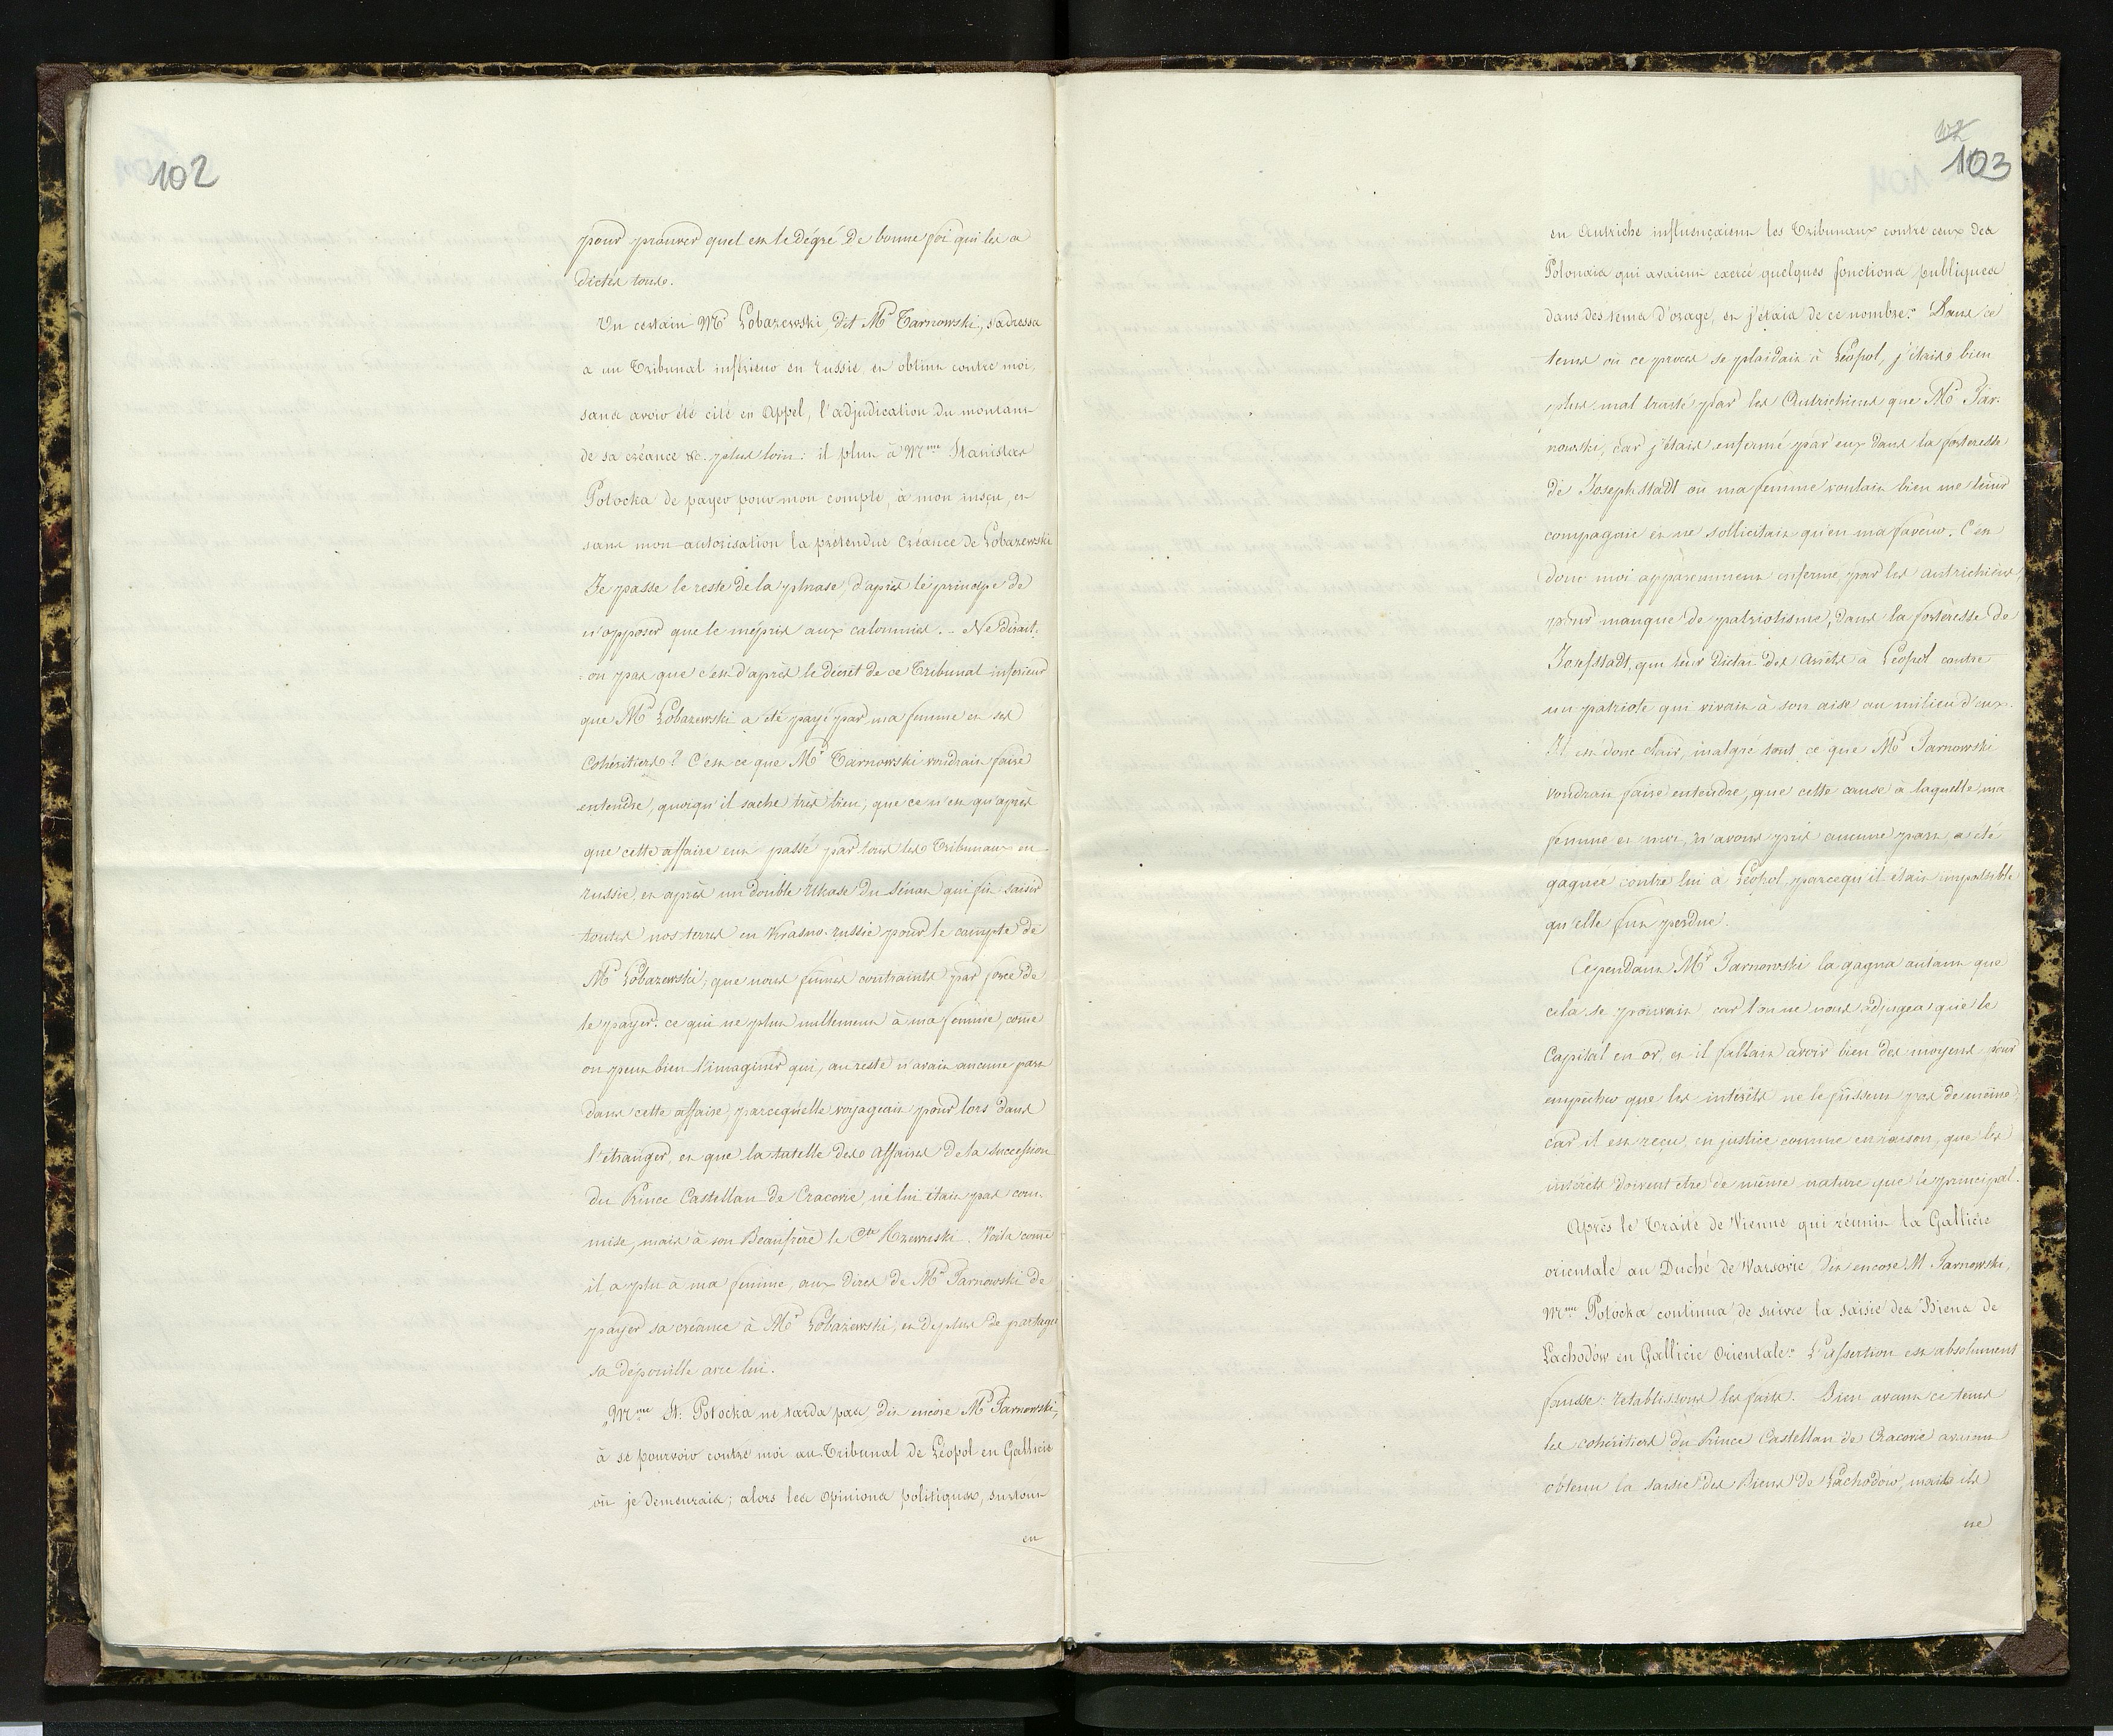 102
pour prouver quel est le dégré de bonne foi qui les a
dictés tous.
Un certain Mr Lobazewski, dit Mr Tarnowski, s'adressa
a un Tribunal inférieur en russie, et obtint contre moi,
sans avoir été cité en Appel, l'adjudication du montant
de sa créance &c. plus loin: il plut à Mme Stanislas
Potocka de payer pour mon compte, à mon insçu, et
sans mon autorisation la prétendue Créance de Lobazewski
Je passe le reste de la phrase, d'après le principe de
n'opposer que le mépris aux calomnies. - Ne dirait-
-on pas que c'est d'après le décrèt de ce Tribunal inférieur
que Mr Lobazewski a été payé par ma femme et ses
Cohéritiers? C'est ce que Mr Tarnowski voudrait faire
entendre, quoiqu'il sache très bien, que ce n'est qu'après
que cette affaire eut passé par tous les Tribunaux en
russie, et après un double Ukase du Sénat qui fit saisir
toutes nos terres en Krasno-russie pour le compte de
Mr Lobazewski, que nous fûmes contraints par force de
le payer. ce qui ne plut nullement à ma femme, come
on peut bien l'imaginer qui, au reste n'avait aucune part
dans cette affaire, parcequ'elle voyageait pour lors dans
l'etranger, et que la tutelle des affaires de la succession
du Prince Castellan de Cracovie, ne lui était pas com-
mise, mais à son Beaufrère le Cte Rzewuski. Voila come
il a plu à ma femme, aux dires de Mr Tarnowski de
payer sa créance à Mr Lobazewski, et deplus de partager
sa dépouille avec lui.
„Mme St: Potocka ne tarda pas, dit encore Mr Tarnowski,
à se pourvoir contre moi au Tribunal de Léopol en Gallicie
où je demeurais; alors les opinions politiques, surtout
en
102
103
en Autriche influençaient les Tribunaux contre ceux des
Polonais qui avaient exercé quelques fonctions publiques
dans des tems d'orage, et j'étais de ce nombre." Dans ce
tems où ce procès se plaidait à Léopol, j'étais bien
plus mal traité par les Autrichiens que Mr Tar-
nowski, car j'étais enfermé par eux dans la forteresse
de Josephstadt où ma femme voulait bien me tenir
compagnie et ne sollicitait qu'en ma faveur. C'est
donc moi apparemment enfermé par les autrichiens,
pour manque de patriotisme, dans la forteresse de
Josefstadt, qui leur dictai des Arrêts à Léopol contre
un patriote qui vivait à son aise au milieu d'eux.
Il est donc clair, malgré tout ce que Mr Tarnowski
voudrait faire entendre, que cette cause à laquelle ma
femme et moi, n'avons pris aucune part, a été
gagnée contre lui à Léopol, parcequ'il était impossible
qu'elle fut perdue.
Cependant Mr Tarnowski la gagna autant que
cela se pouvait car l'on ne nous adjugea que le
Capital en or, et il fallait avoir bien des moyens pour
empêcher que les intérêts ne le fussent pas de même,
car il est reçu, en justice comme en raison, que les
intérêts doivent etre de même nature que le principal.
Après le Traité de Vienne qui réunit la Gallicie
orientale au Duché de Varsovie, dit encore M Tarnowski,
Mme Potocka continua de suivre la saisie des Biens de
Lachodów en Gallicie Orientale." L'assertion est absolument
fausse: retablissons les faits. Bien avant ce tems
les cohéritiers du Prince Castellan de Cracovie avaient
obtenu la saisie des Biens de Lachodów, mais ils
ne